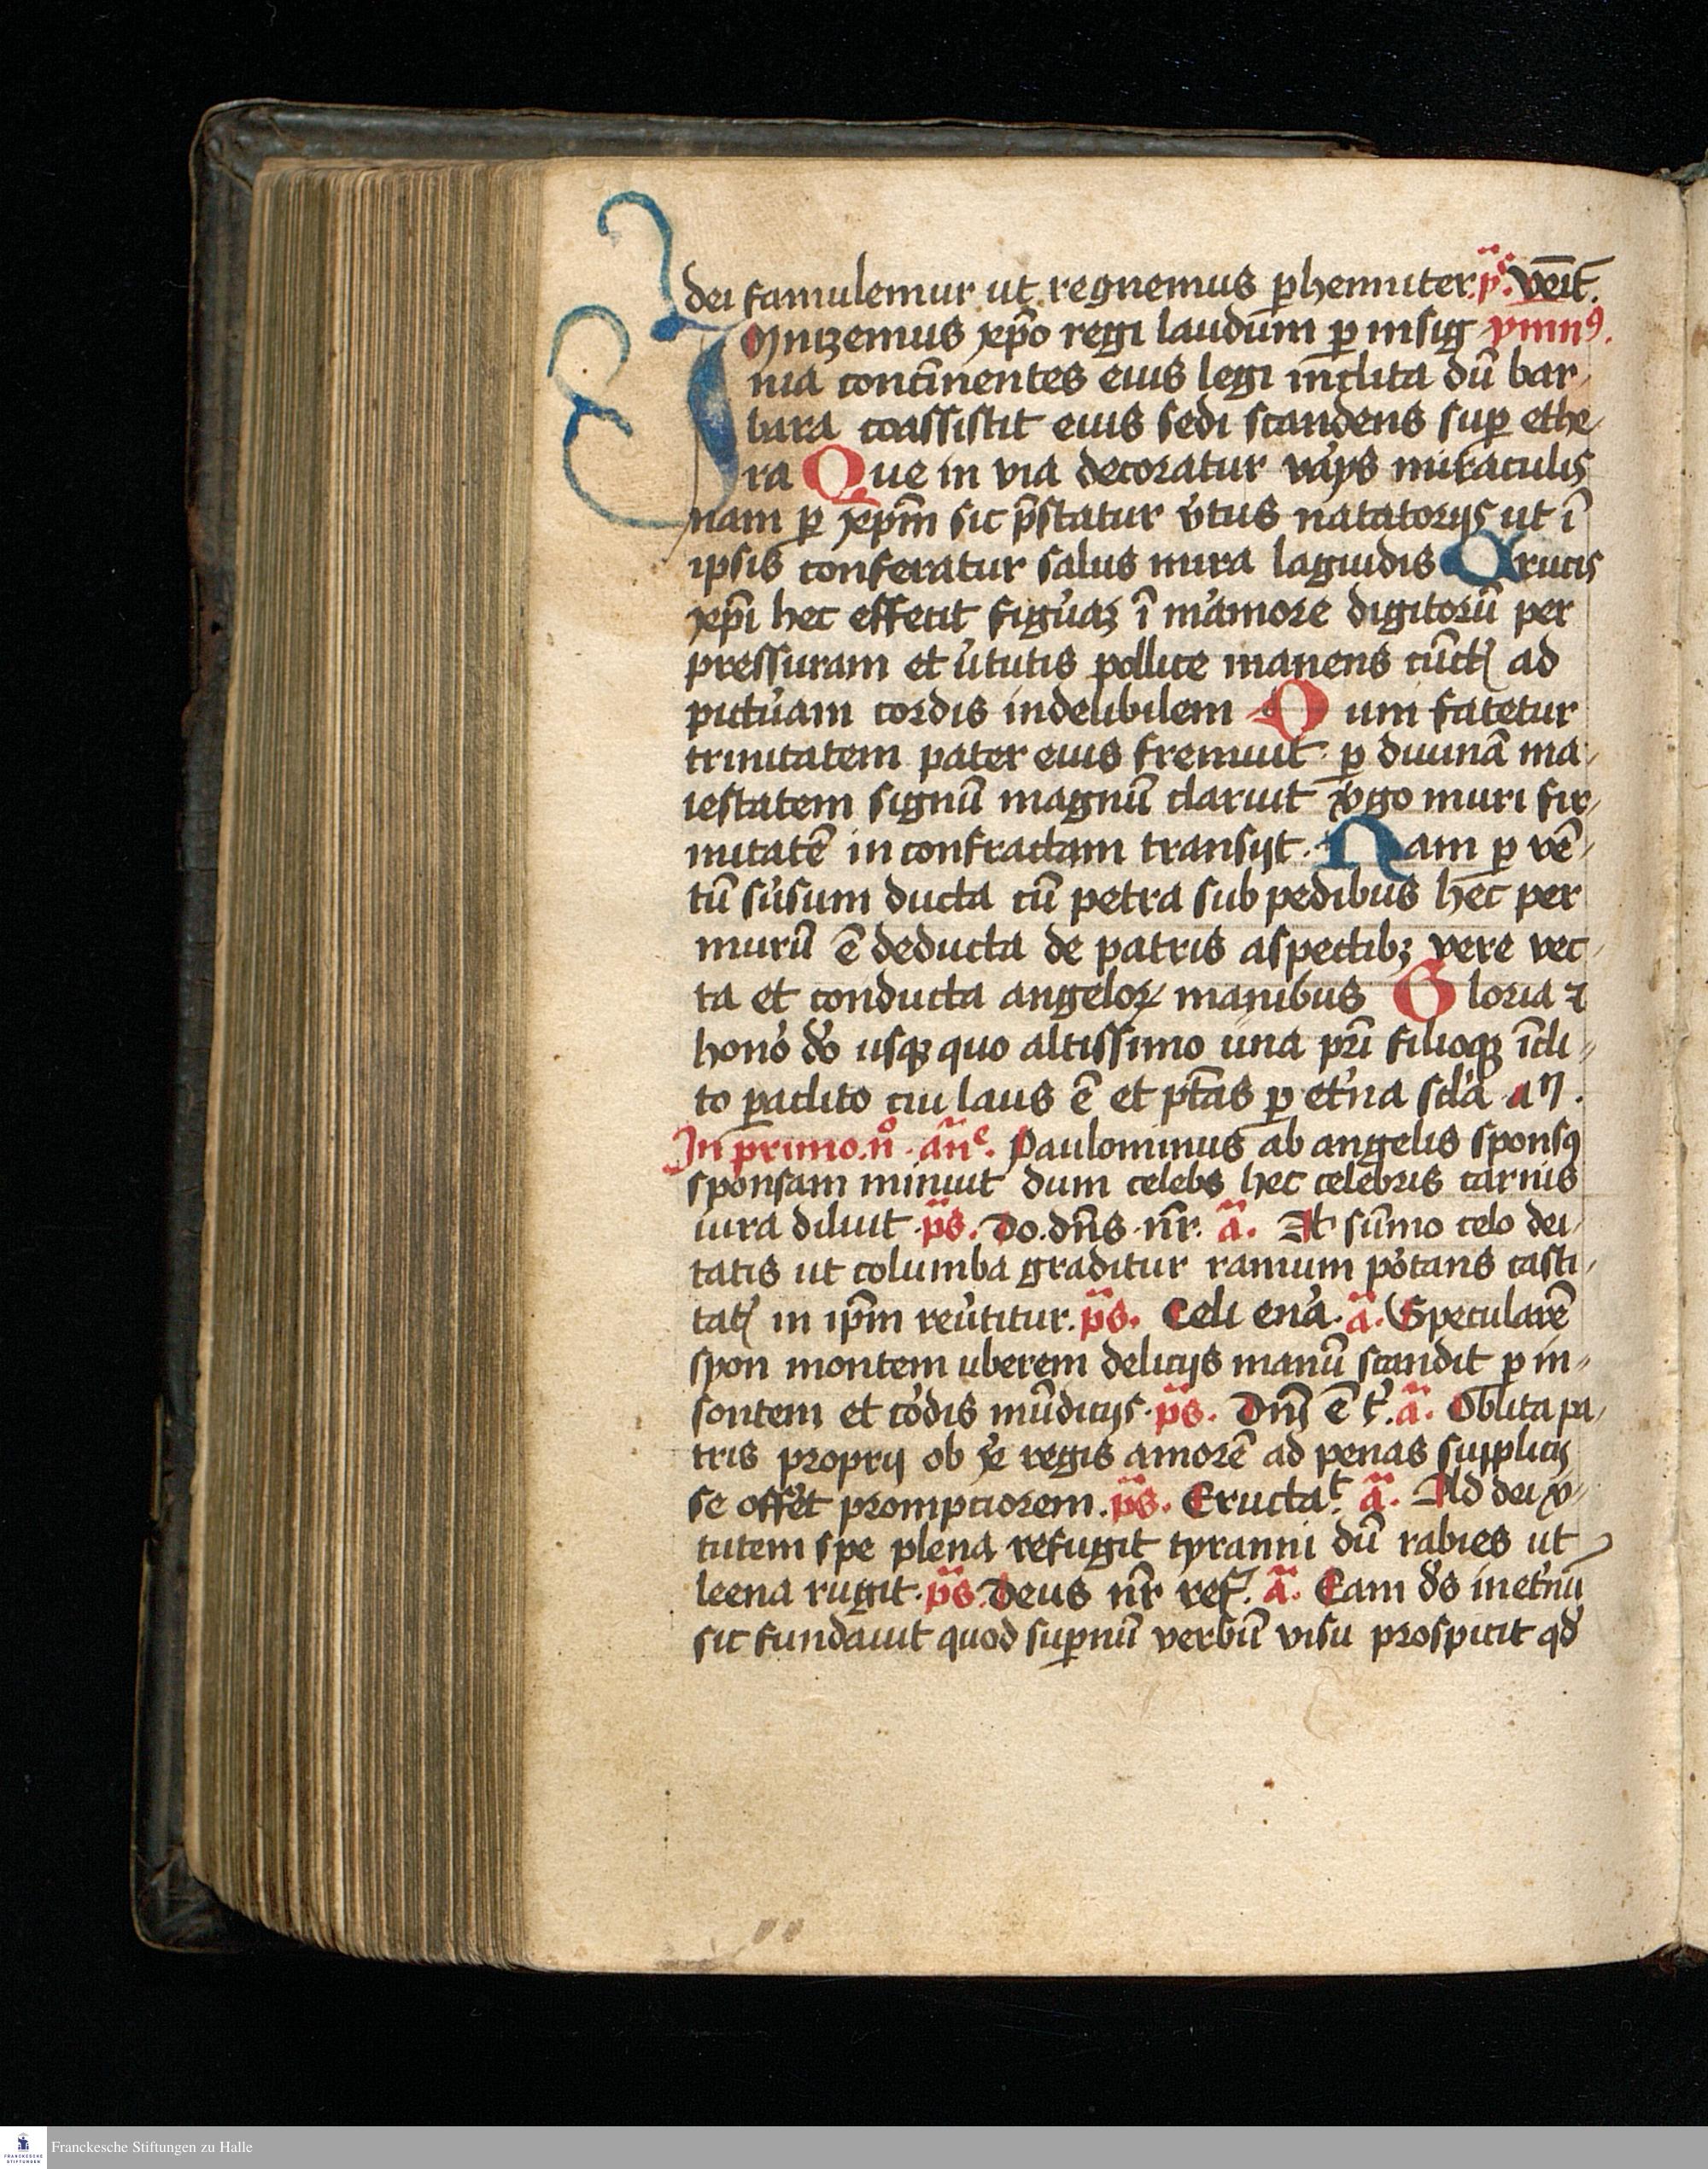 dei famulemur ut regnemus ꝑhenniter. p̄s. venit̄.
Ymnizemus xp̄o regi laudum ꝑ insig ymnꝰ.
nia concīnentes eius legi inclita dū bar
bara coassistit eius sedi scandens suꝑ ethe
ra Que in via decoratur varijs miraculis
nam ꝑ xp̄m sic p̄statur v̓tus natatorijs ut ī
ipsis conferatur salus mira laguidis Crucis
xp̄i hec effecit figu̓aʒ ī ma̓more digitorū per
pressuram et u̓tutis pollice manens cūctꝭ ad
pictu̓am cordis indelibilem Dum fatetur
trinitatem pater eius fremuit ꝑ diuinā ma
iestatem signū magnū claruit v̓go muri fir
mitatē in confractam transijt. Nam ꝑ vē
tū su̓sum ducta cū petra sub pedibus hec per
murū ē deducta de patris aspectibꝫ vere vec
ta et conducta angeloꝝ manibus Gloria ⁊
hono̓ deo usqꝫ quo altissimo una pr̄i filioqꝫ īcli
to ꝑaclito cui laus ē et ptās ꝑ et̓na scl̓a aη.
In primo. n̊. añe. Paulominus ab angelis sponsꝰ
sponsam minuit dum celebs hec celebris carnis
iura diluit. p̄s. Do. dn̄s. nr̄. ā. At sūmo celo dei
tatis ut columba graditur ramum po̓tans casti
tatꝭ in ip̄m reu̓titur. p̄s. Celi ena̓. ā. Specularē
syon montem uberem delicijs manū scandit ꝑ in
sontem et co̓dis mūdicijs. p̄s. Dnī ē t̓. ā. Oblita pa
tris proprij ob xp̄i regis amorē ad penas supplicij
se offe̓t prompciorem. p̄s. Eructaᵗ. ā. Ad dei v̓
tutem spe plena refugit tyranni dū rabies ut
leena rugit. p̄s. Deus nr̄ ref. ā. Eam ds̄ in et̓nū
sic fundauit quod suꝑnū verbū visu prospicit qd̓
Franckesche Stiftungen zu Halle